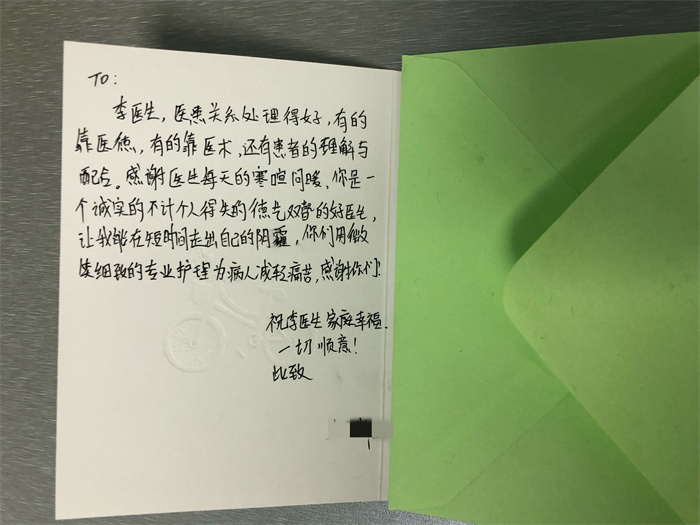 TO:
李医生,医患关系处理得好,有的
靠医德,有的靠医术,还有患者的理解与
配合。感谢医生每天的寒暄问暖、你是一
个诚实的不计个人得失的德艺双馨的好医生,
让我能在短时间走出自己的阴霾,你们用微
笑细致的专业护理为病人减轻痛苦,感谢你们!
祝李医生家庭幸福.
一切顺意!
比致